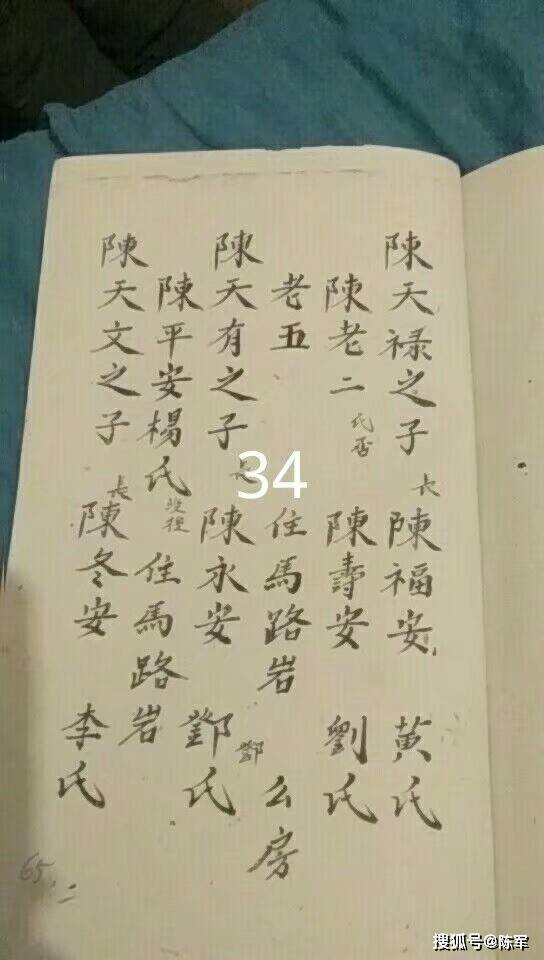 陳天禄之子 長 陳福安 黃氏
陳老二 氏否 陳壽安 劉氏
老五 住馬路岩 么房
陳天有之子 長 陳永安 鄧氏 鄧
陳平安楊氏 住馬路岩
陳天文之子 長 陳冬安 李氏
34
65
二
搜狐号@陈军